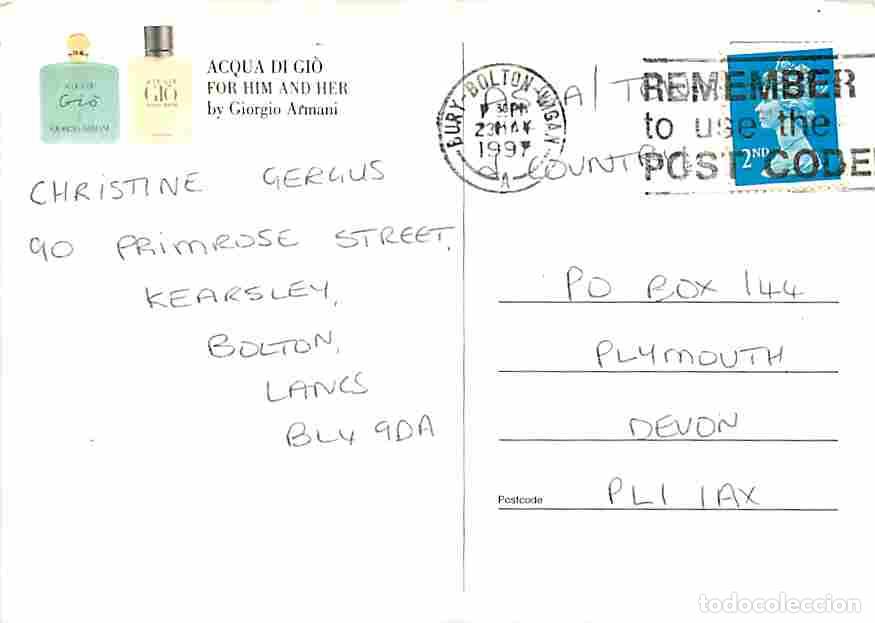 ACQUA DI GIÒ
FOR HIM AND HER
by Giorgio Armani
CHRISTINE GERGUS
90 PRIMROSE STREET,
KEARSLEY,
BOLTON,
LANCS
BL4 9DA
BURY-BOLTON-WIGAN
23 MAY
1997
A
REMEMBER
to use the
POST CODE
2ND
A/T
COUNTRY
PO BOX 144
PLYMOUTH
DEVON
Postcode PL1 1AX
todocoleccion